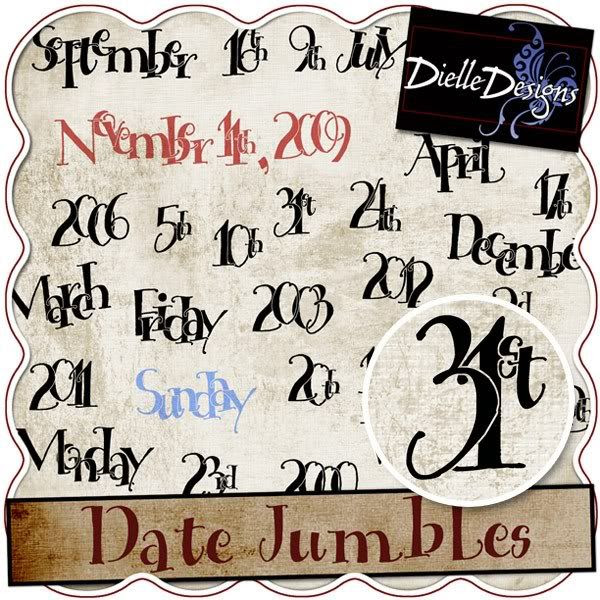 September 16th 9th July
Dielle Designs
November 11th, 2009
April
2006 5th 10th 31st 24th 17th
December
March Friday 2003 2012
2011 Sunday 20th
31st
Monday 23rd
Date Jumbles